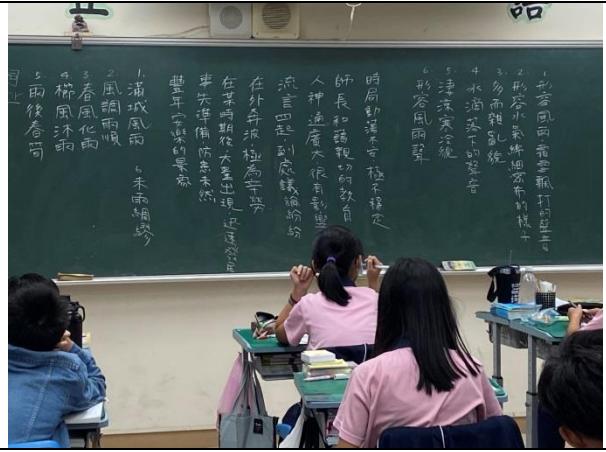 語
1.形容風雨霜雪飄打的聲音
2.形容水氣綿細密布的樣子
3.多而雜亂貌
4.水滴落下的聲音
5.淒涼寒冷貌
6.形容風雨聲
時局動蕩不安 極不穩定
師長和藹親切的教育
人神通廣大很有影響
流言四起 到處議論紛紛
在外奔波 極為辛勞
在某時期後大量出現 迅速發展
事先準備防患未然
豐年安樂的景象
1.滿城風雨 6.未雨綢繆
2.風調雨順
3.春風化雨
4.櫛風沐雨
5.雨後春筍